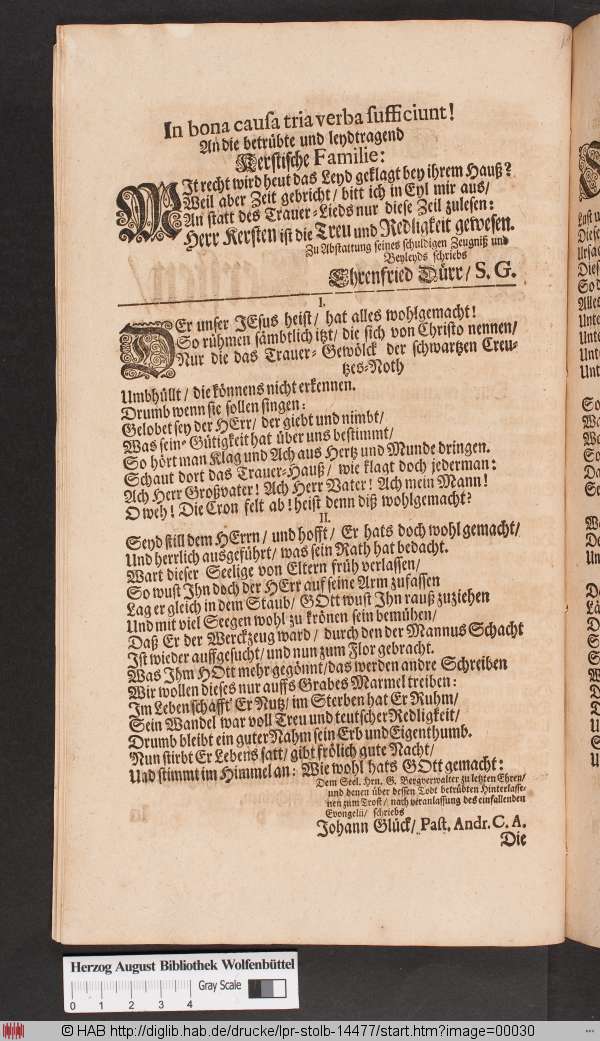 In bona causa tria verba sufficiunt!
An die betrübte und leydtragend
Kerstische Familie:
MIt recht wird heut das Leyd geklagt bey ihrem Hauß?
Weil aber Zeit gebricht / bitt ich in Eyl mir aus /
An statt des Trauer-Lieds nur diese Zeil zulesen:
Herr Kersten ist die Treu und Redligkeit gewesen.
Zu Abstattung seines schuldigen Zeugniß und
Beyleyds schriebs
Ehrenfried Dürr / S. G.
I.
DEr unser JEsus heist / hat alles wohlgemacht!
So rühmen sämbtlich itzt / die sich von Christo nennen /
Nur die das Trauer-Gewölck der schwartzen Creu-
tzes-Noth
Umbhüllt / die können s nicht erkennen.
Drumb wenn sie sollen singen:
Gelobet sey der HErr / der giebt und nimbt /
Was seine Gütigkeit hat über uns bestimmt /
So hört man Klag und Ach aus Hertz und Munde dringen.
Schaut dort das Trauer-Hauß / wie klagt doch jederman:
Ach Herr Großvater! Ach Herr Vater! Ach mein Mann!
O weh! Die Cron felt ab! heist denn diß wohlgemacht?
II.
Seyd still dem HErrn / und hofft / Er hats doch wohl gemacht /
Und herrlich ausgeführt / was sein Rath hat bedacht.
Wart dieser Seelige von Eltern früh verlassen /
So wust Ihn doch der HErr auf seine Arm zufassen
Lag er gleich in dem Staub / GOtt wust Ihn rauß zuziehen
Und mit viel Seegen wohl zu krönen sein bemühen /
Daß Er der Werckzeug ward / durch den der Mannus Schacht
Ist wieder auffgesucht / und nun zum Flor gebracht.
Was Ihm HOtt mehr gegönnt / das werden andre Schreiben
Wir wollen dieses nur auffs Grabes Marmel treiben:
Im Leben schafft Er Nutz / im Sterben hat Er Ruhm /
Sein Wandel war voll Treu und teutscher Redligkeit /
Drumb bleibt ein guter Nahm sein Erb und Eigenthumb.
Nun stirbt Er Lebens satt / gibt frölich gute Nacht /
Und stimmt im Himmel an: Wie wohl hats GOtt gemacht:
Dem Seel. Hrn. G. Bergverwalter zu letzten Ehren /
und denen über dessen Todt betrübten Hinterlasse-
nen zum Trost / nach veranlassung des einfallenden
Evangelii / schriebs
Johann Glück / Past. Andr. C. A.
Die
Herzog August Bibliothek Wolfenbüttel
Gray Scale
0 1 2 3 4
© HAB http://diglib.hab.de/drucke/lpr-stolb-14477/start.htm?image=00030